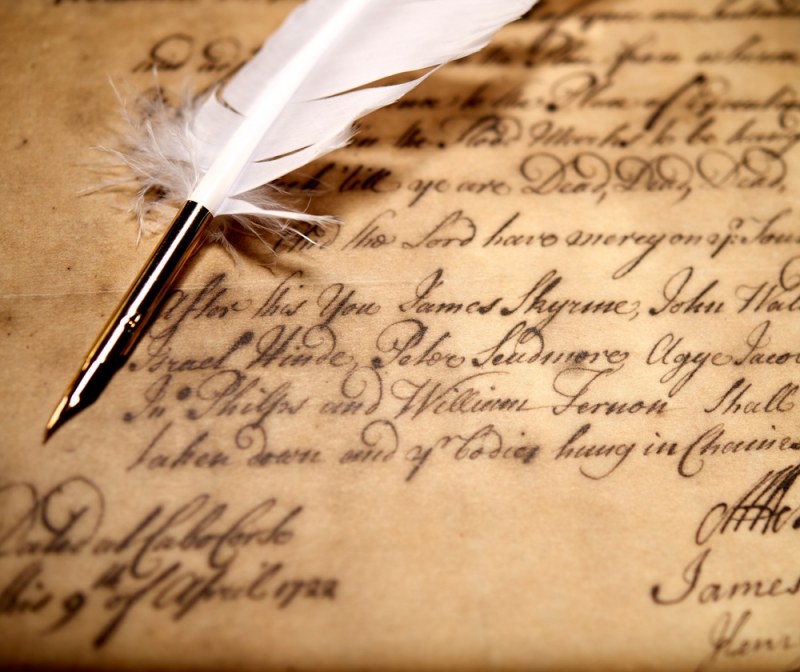 from whence
to the Place of Execution
the Flood Marks to be hang
'till ye are Dead, Dead, Dead,
And the Lord have mercy on yr. Soul
After this You James Skyrme, John Wal
Israel Hinde, Peter Scudmore Agge Jacob
Jno. Philps and William Fernon Shall
taken down and yr bodies hung in Chaines
Dated at Cabo Corso
this 9th of April 1722
James
Henr